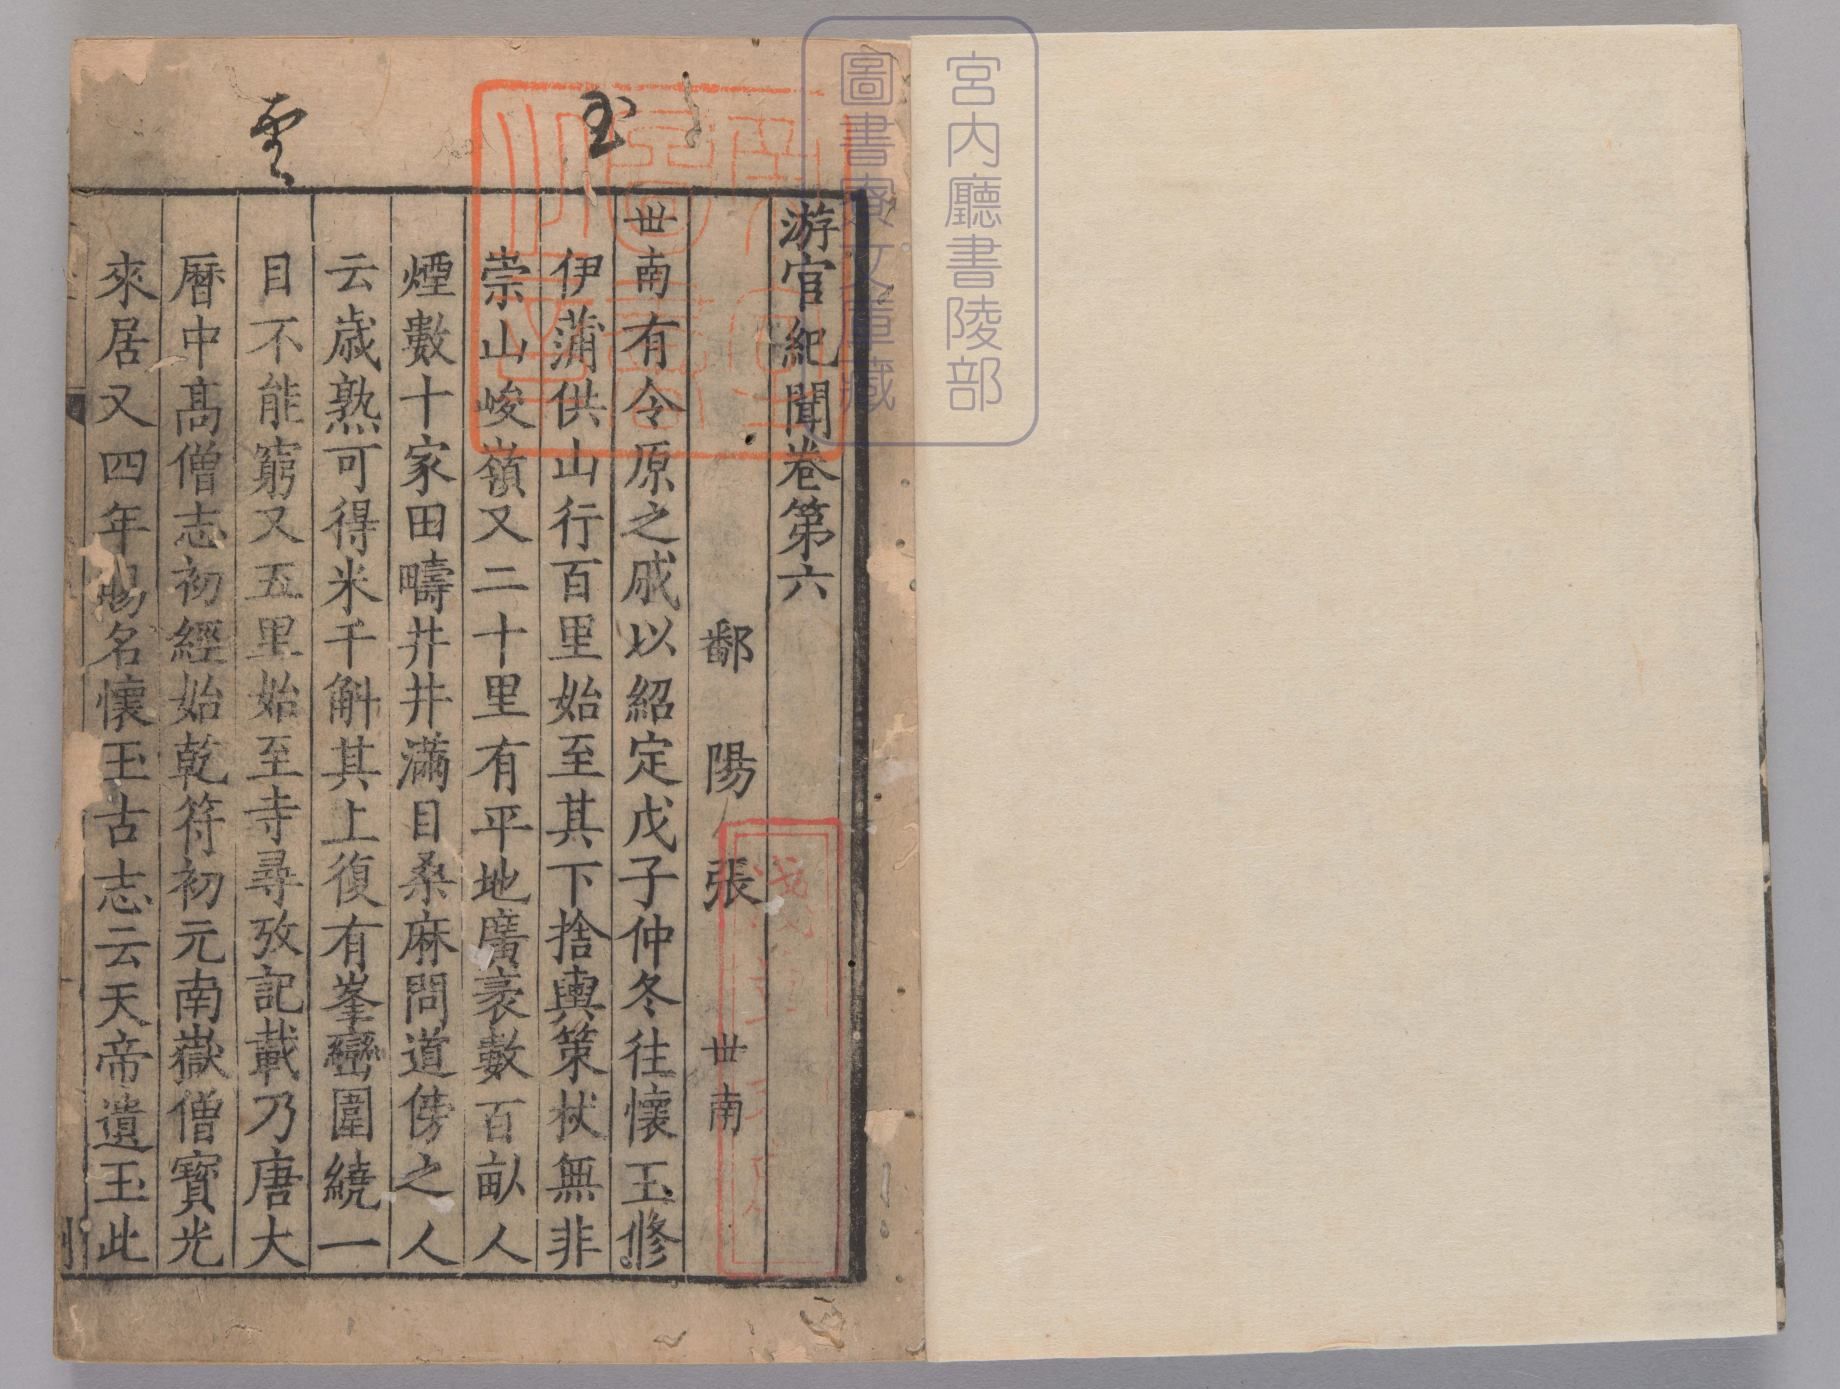 宮内廳書陵部
圖書寮文庫藏
游宦紀聞卷第六
鄱陽張世南
世南有令原之戚以紹定戊子仲冬往懷玉修
伊蒲供山行百里始至其下捨輿策杖無非
崇山峻嶺又二十里有平地廣袤數百畝人
煙數十家田疇井井滿目桑麻問道傍之人
云歲熟可得米千斛其上復有峯巒圍繞一
目不能窮又五里始至寺尋攷記載乃唐大
曆中高僧志初經始乾符初元南嶽僧寶光
來居又四年賜名懷玉古志云天帝遺玉此